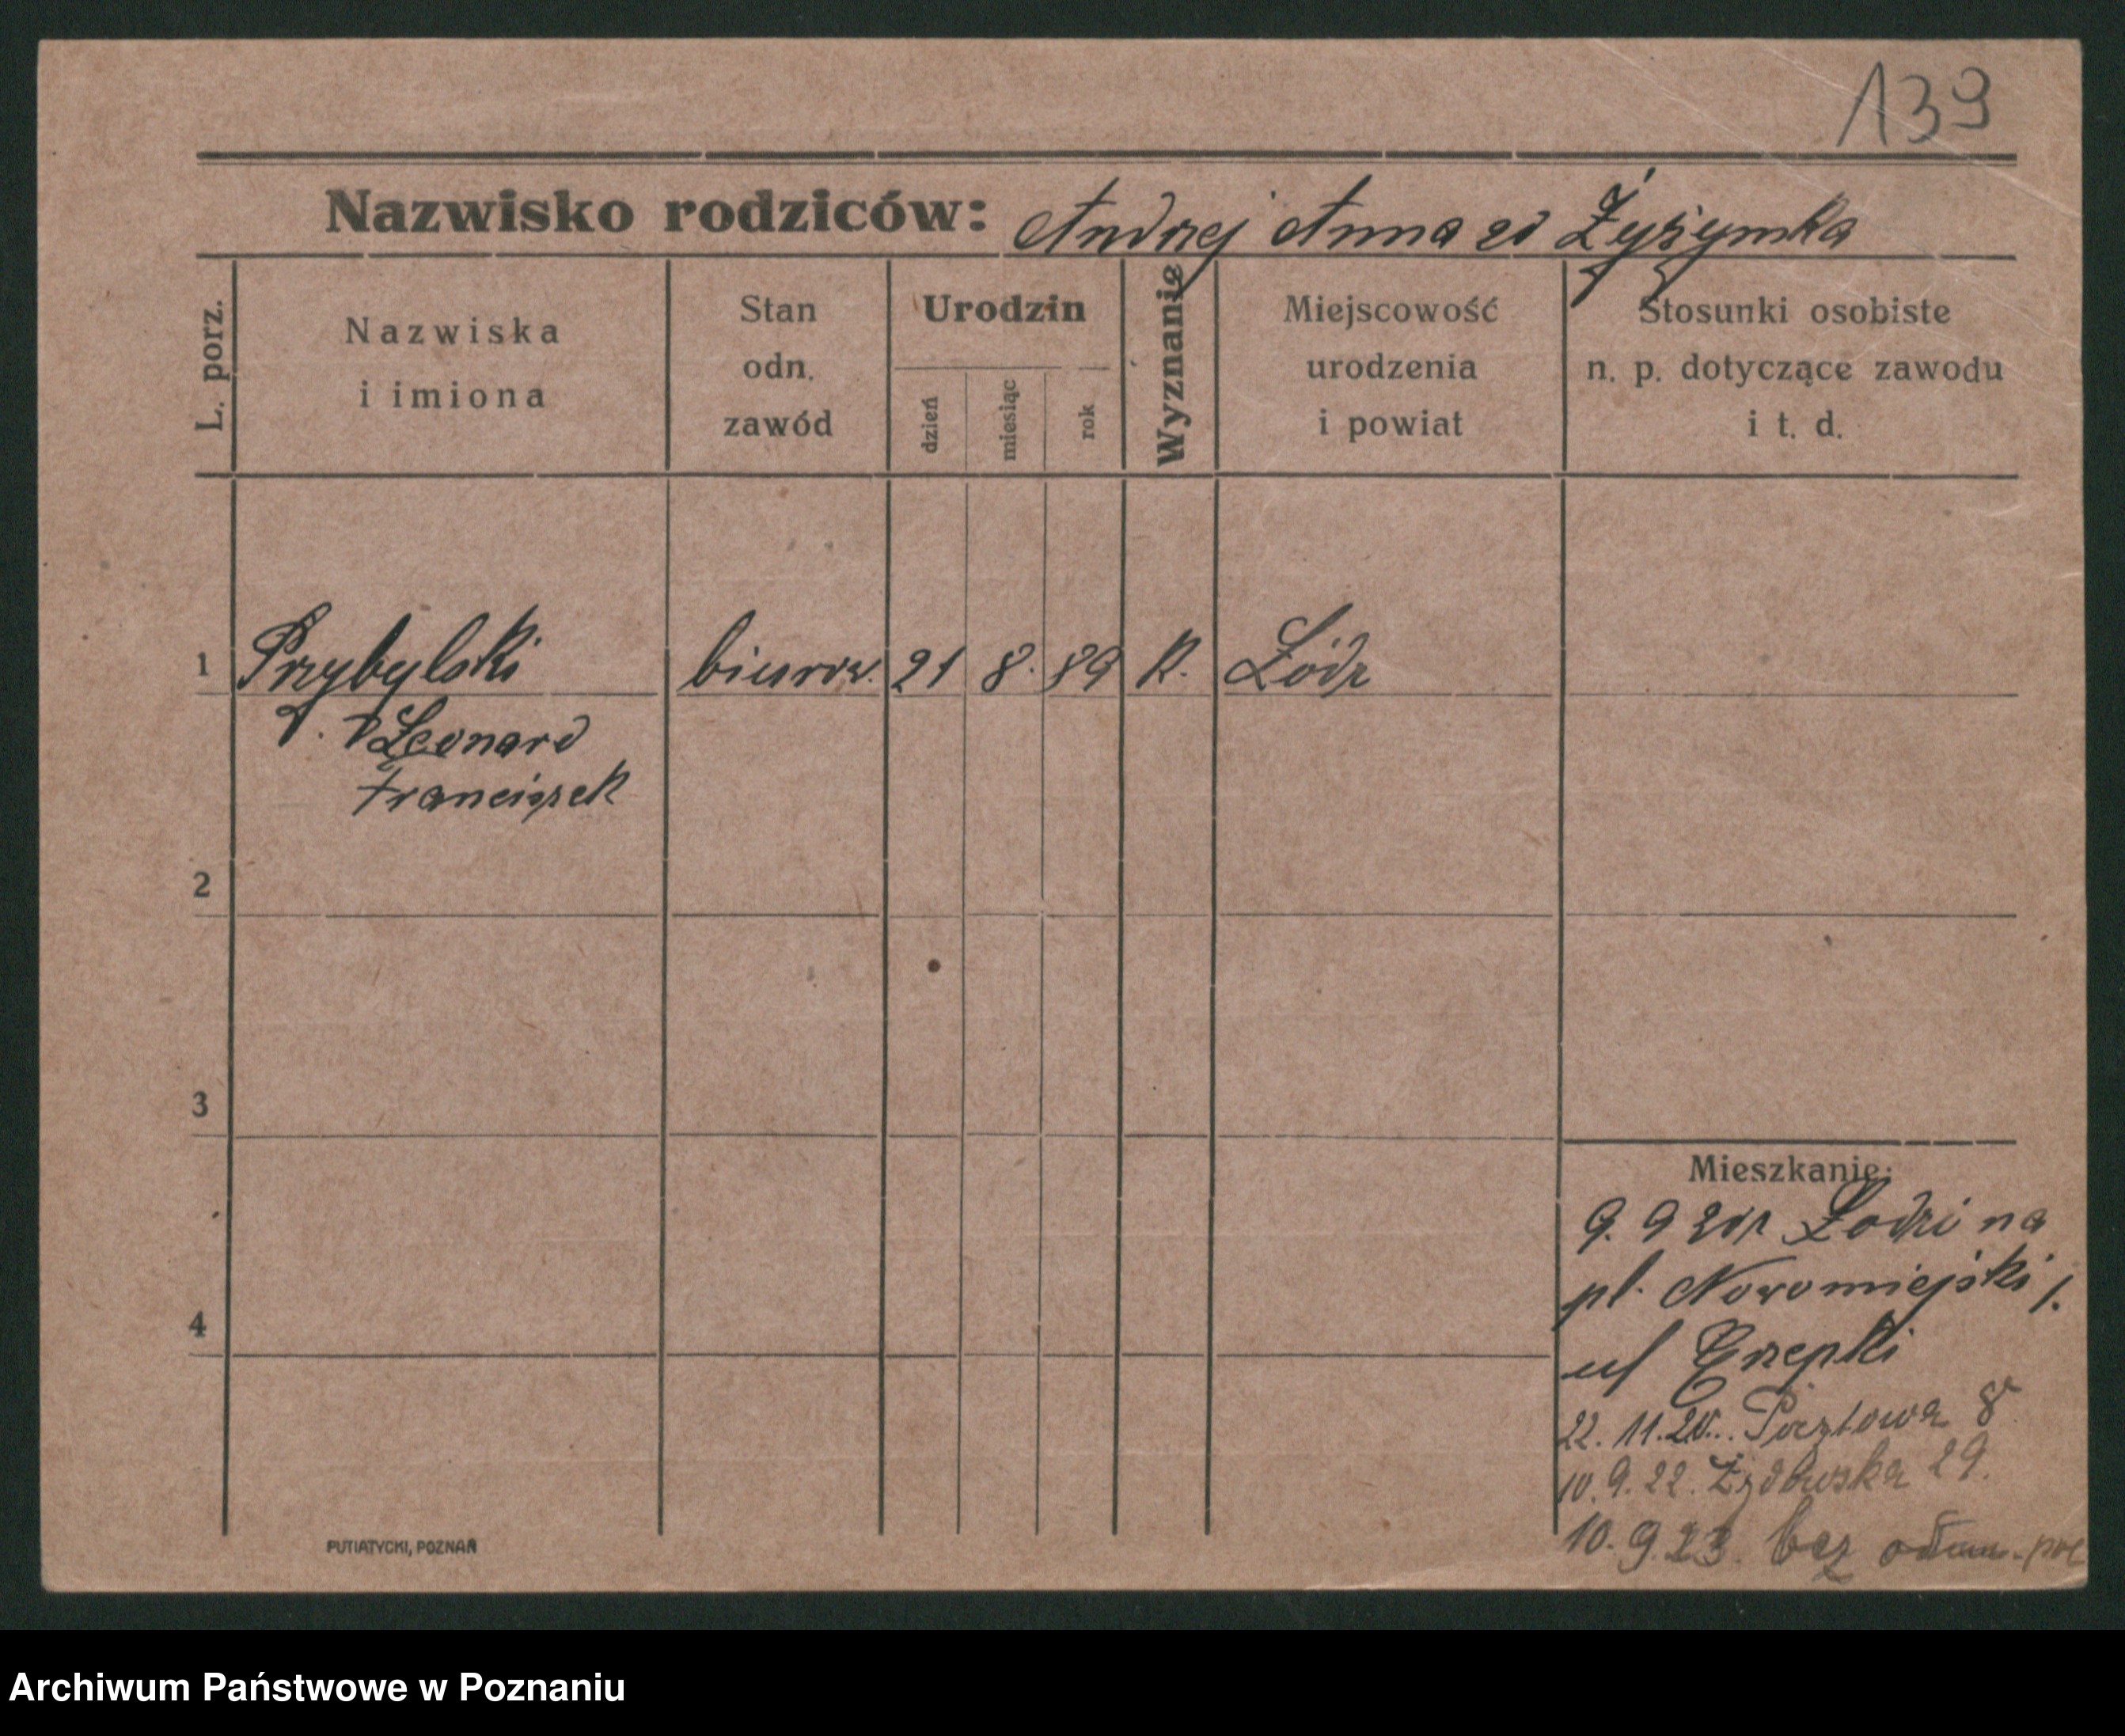 139
Nazwisko rodziców: Andrzej Anna zd
L. porz.
Nazwiska
i imiona
Stan
odn.
zawód
Urodzin
dzień
miesiąc
rok
Wyznanie
Miejscowość
urodzenia
i powiat
Stosunki osobiste
n. p. dotyczące zawodu
i t. d.
1 Przybylski biurow. 21 8. 89 K. Łódz
Leonard
Franciszek
2
3
4
Mieszkanie:
9. 9 20 z Łodzi na
pl. Nowomiejski 1.
ul
22. 11. 20. Pocztowa 8
10. 9. 22. Żydowska 29.
10. 9. 23. bez
PUTIATYCKI, POZNAŃ
Archiwum Państwowe w Poznaniu